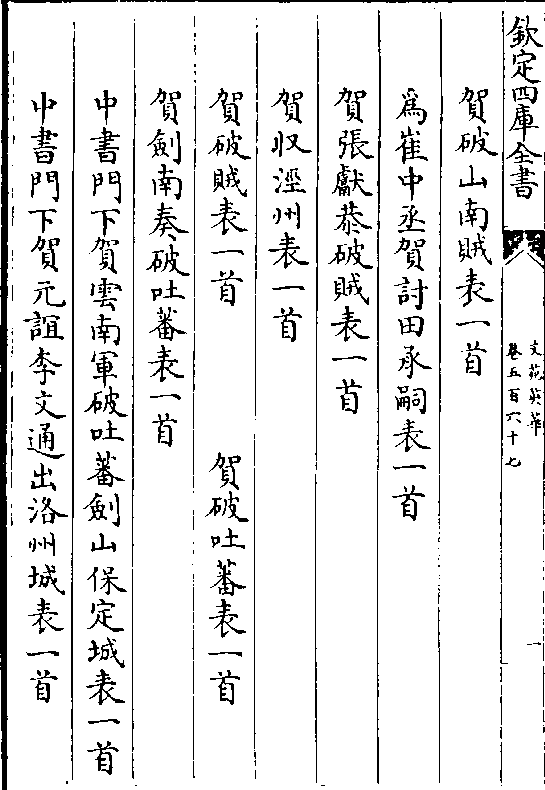 欽定四庫全書
文苑英華
卷五百六十七
一
賀破山南賊表一首
爲崔中丞賀討田承嗣表一首
賀張獻恭破賊表一首
賀収涇州表一首
賀破賊表一首　賀破吐蕃表一首
賀劍南奏破吐蕃表一首
中書門下賀雲南軍破吐蕃劍山保定城表一首
中書門下賀元誼李文通出洛州城表一首